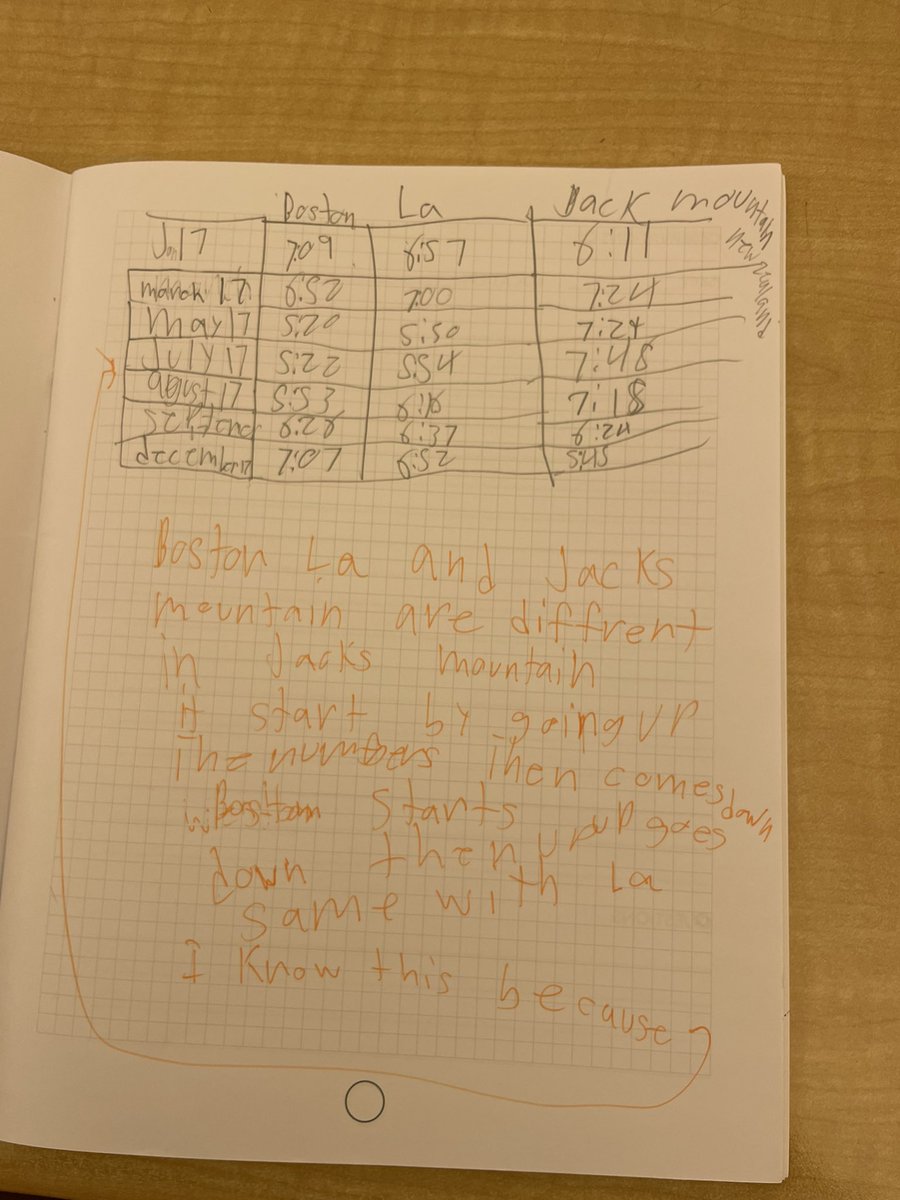 Boston La Jack mountain
new zealand
Jan 17 7:09 6:57 6:11
march 17 6:52 7:00 7:24
May 17 5:20 5:50 7:24
July 17 5:22 5:54 7:48
agust 17 5:53 6:16 7:18
6:26 6:37 6:24
december 17 7:07 6:52 5:45
Boston La and Jacks
mountain are diffrent
in Jacks mountain
it start by going up
The numbers Then comes down
Boston starts up goes
down then up
same with La
I Know this because